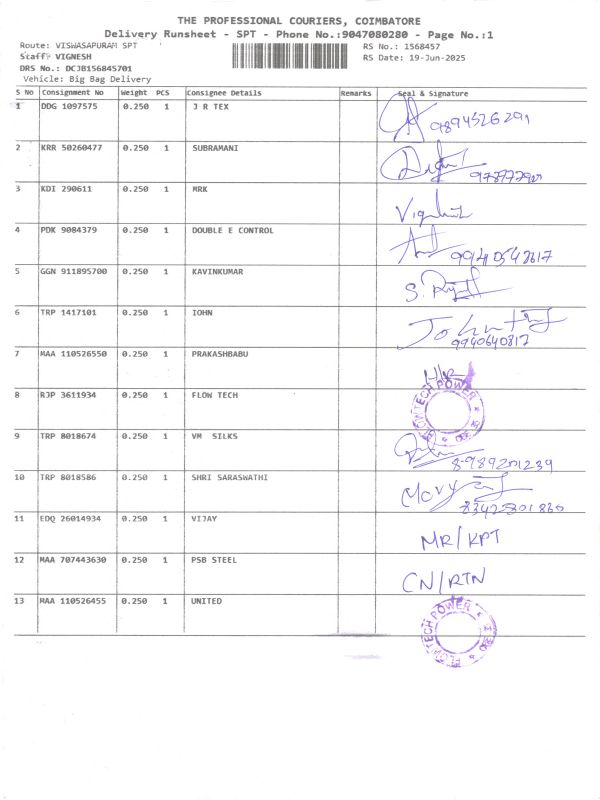 THE PROFESSIONAL COURIERS, COIMBATORE
Delivery Runsheet - SPT - Phone No.:9047080280 - Page No.:1
Route: VISWASAPURAM SPT RS No.: 1568457
Staff: VIGNESH RS Date: 19-Jun-2025
DRS No.: DCJB156845701
Vehicle: Big Bag Delivery
S No Consignment No Weight PCS Consignee Details Remarks Seal & Signature
1 DDG 1097575 0.250 1 J R TEX
9894526291
2 KRR 50260477 0.250 1 SUBRAMANI
3 KDI 290611 0.250 1 MRK
4 PDK 9084379 0.250 1 DOUBLE E CONTROL
5 GGN 911895700 0.250 1 KAVINKUMAR
6 TRP 1417101 0.250 1 IOHN
9940640817
7 MAA 110526550 0.250 1 PRAKASHBABU
8 RJP 3611934 0.250 1 FLOW TECH
FLOWTECH POWER
9 TRP 8018674 0.250 1 VM SILKS
8-989201239
10 TRP 8018586 0.250 1 SHRI SARASWATHI
11 EDQ 26014934 0.250 1 VIJAY MR/KPT
12 MAA 707443630 0.250 1 PSB STEEL CN/RTN
13 MAA 110526455 0.250 1 UNITED
FLOWTECH POWER